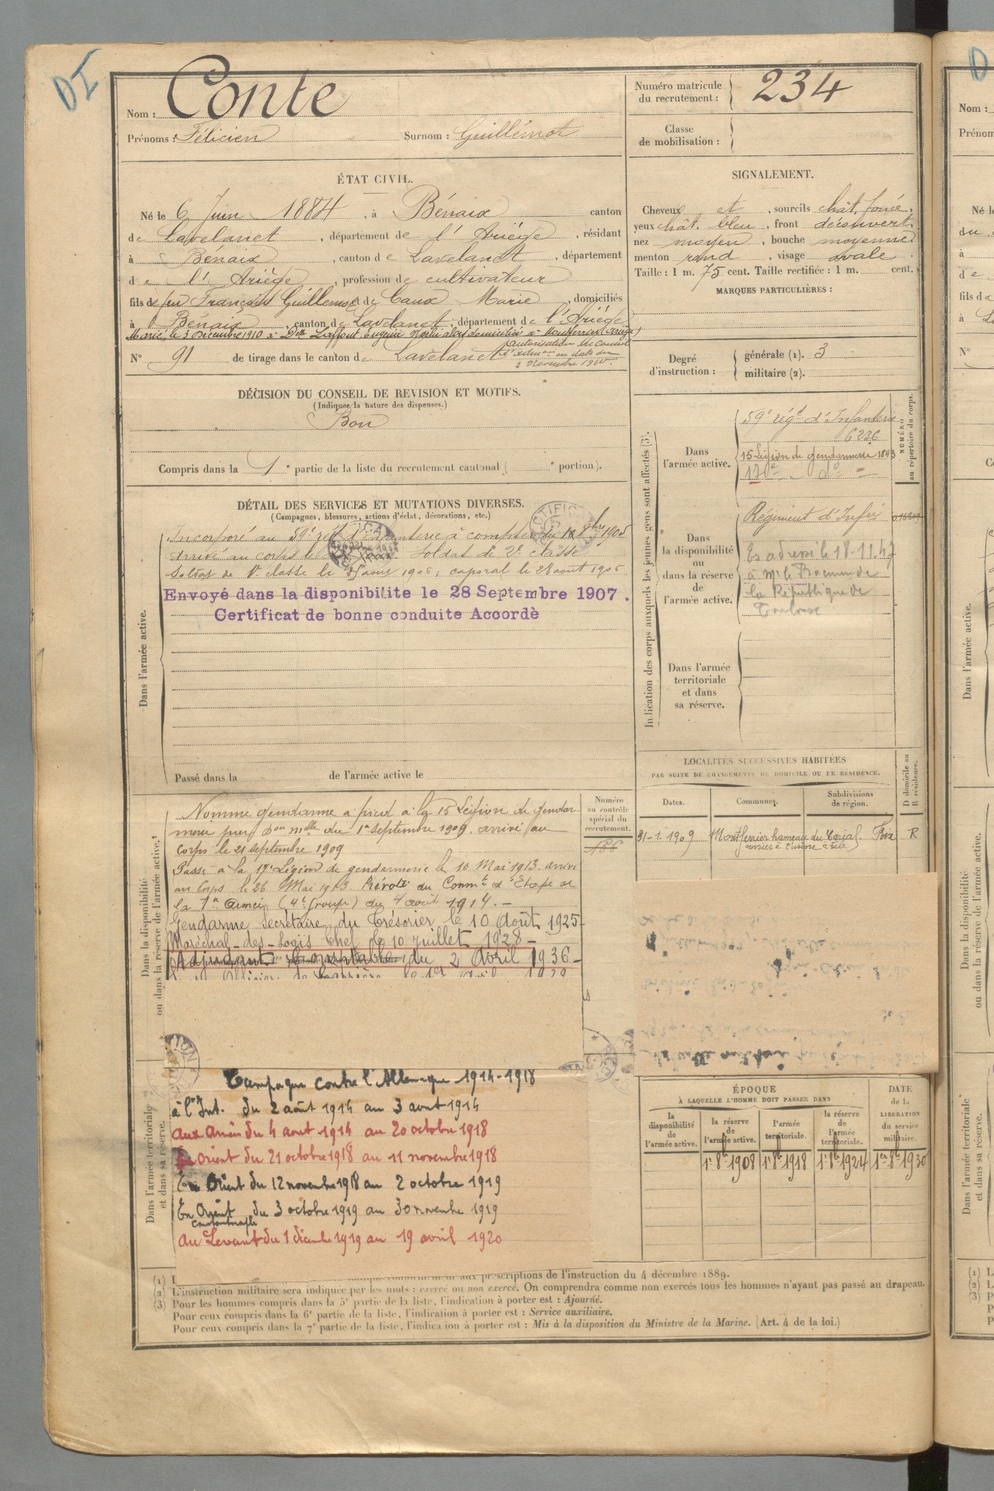 DI
Nom : Conte
Prénoms : Félicien Surnom : Guillemot
Numéro matricule du recrutement : 234
Classe de mobilisation :
ÉTAT CIVIL.
Né le 6 Juin 1884, à Bénaix canton
de Lavelanet, département de l'Ariège, résidant
à Bénaix, canton de Lavelanet, département
de l'Ariège, profession de cultivateur
fils de feu François Guillemot et de Caux Marie, domiciliés
à Bénaix canton de Lavelanet, département de l'Ariège
Marié le 3 Décembre 1910 à Dlle Laffont
N° 91 de tirage dans le canton de Lavelanet
SIGNALEMENT.
Cheveux et , sourcils chât. foncé,
yeux chât. bleu, front découvert,
nez moyen, bouche moyenne
menton rond, visage ovale.
Taille : 1 m. 75 cent. Taille rectifiée : 1 m. cent.
MARQUES PARTICULIÈRES :
Degré d'instruction : générale (1). 3
militaire (2).
DÉCISION DU CONSEIL DE REVISION ET MOTIFS.
(Indiquer la nature des dispenses.)
Bon
Compris dans la 1e partie de la liste du recrutement cantonal ( e portion).
DÉTAIL DES SERVICES ET MUTATIONS DIVERSES.
(Campagnes, blessures, actions d'éclat, décorations, etc.)
Dans l'armée active.
Incorporé au 59e régt d'Infanterie à compter du
arrivé au corps le Soldat de 2e classe
Soldat de 1e classe le avril 1906; caporal le 28 août 1906
Envoyé dans la disponibilite le 28 Septembre 1907.
Certificat de bonne conduite Accordè
Passé dans la de l'armée active le
Indication des corps auxquels les jeunes gens sont affectés (3).
NUMÉRO au répertoire du corps.
Dans l'armée active.
59e régt d'Infanterie
6236
15 Légion de gendarmerie 1843
17e do
Dans la disponibilité ou dans la réserve de l'armée active.
Régiment d'Infie
Ex adressé le 18-11-47
à Mr le Procureur de
la République de
Toulouse
Dans l'armée territoriale et dans sa réserve.
LOCALITÉS SUCCESSIVES HABITÉES
PAR SUITE DE CHANGEMENTS DE DOMICILE OU DE RÉSIDENCE.
Dates. Communes. Subdivisions de région. D domicile ou R résidence.
31-1 1909 Montferrier hameau du Foix R
Dans la disponibilité ou dans la réserve de l'armée active.
Numéro au contrôle spécial du recrutement.
Nommé gendarme à pied à la 15 Légion de gendar-
merie par Don mlle du 1er septembre 1909. arrivé au
corps le 21 septembre 1909
Passé à la 17e Légion de gendarmerie le 10 Mai 1913. arrivé
au corps le 26 Mai 1913. Prévôté du Commt d'Etape de
la 1re Armée (4e Groupe) du 4 août 1914. -
Gendarme Secrétaire du Trésorier le 10 Août 1925
Maréchal-des-Logis Chef le 10 juillet 1928 -
Adjudant du 2 Avril 1936 -
Dans l'armée territoriale et dans sa réserve.
Campagne contre l'Allemagne 1914-1918
à l'Int. du 2 août 1914 au 3 août 1914
aux Armées du 4 août 1914 au 20 octobre 1918
Orient du 21 octobre 1918 au 11 novembre 1918
En Orient du 12 novembre 1918 au 2 octobre 1919
En Orient du 3 octobre 1919 au 30 novembre 1919
Constantinople
Au Levant du 1 décembre 1919 au 19 avril 1920
ÉPOQUE
À LAQUELLE L'HOMME DOIT PASSER DANS
la disponibilité de l'armée active. la réserve de l'armée active. l'armée territoriale. la réserve de l'armée territoriale.
DATE de la LIBÉRATION du service militaire.
1er 8bre 1908 1er 8bre 1918 1er 8bre 1924 1er 8bre 1930
aux prescriptions de l'instruction du 4 décembre 1889.
(2) L'instruction militaire sera indiquée par les mots : exercé ou non exercé. On comprendra comme non exercés tous les hommes n'ayant pas passé au drapeau.
(3) Pour les hommes compris dans la 5e partie de la liste, l'indication à porter est : Ajourné.
Pour ceux compris dans la 6e partie de la liste, l'indication à porter est : Service auxiliaire.
Pour ceux compris dans la 7e partie de la liste, l'indication à porter est : Mis à la disposition du Ministre de la Marine. (Art. 4 de la loi.)